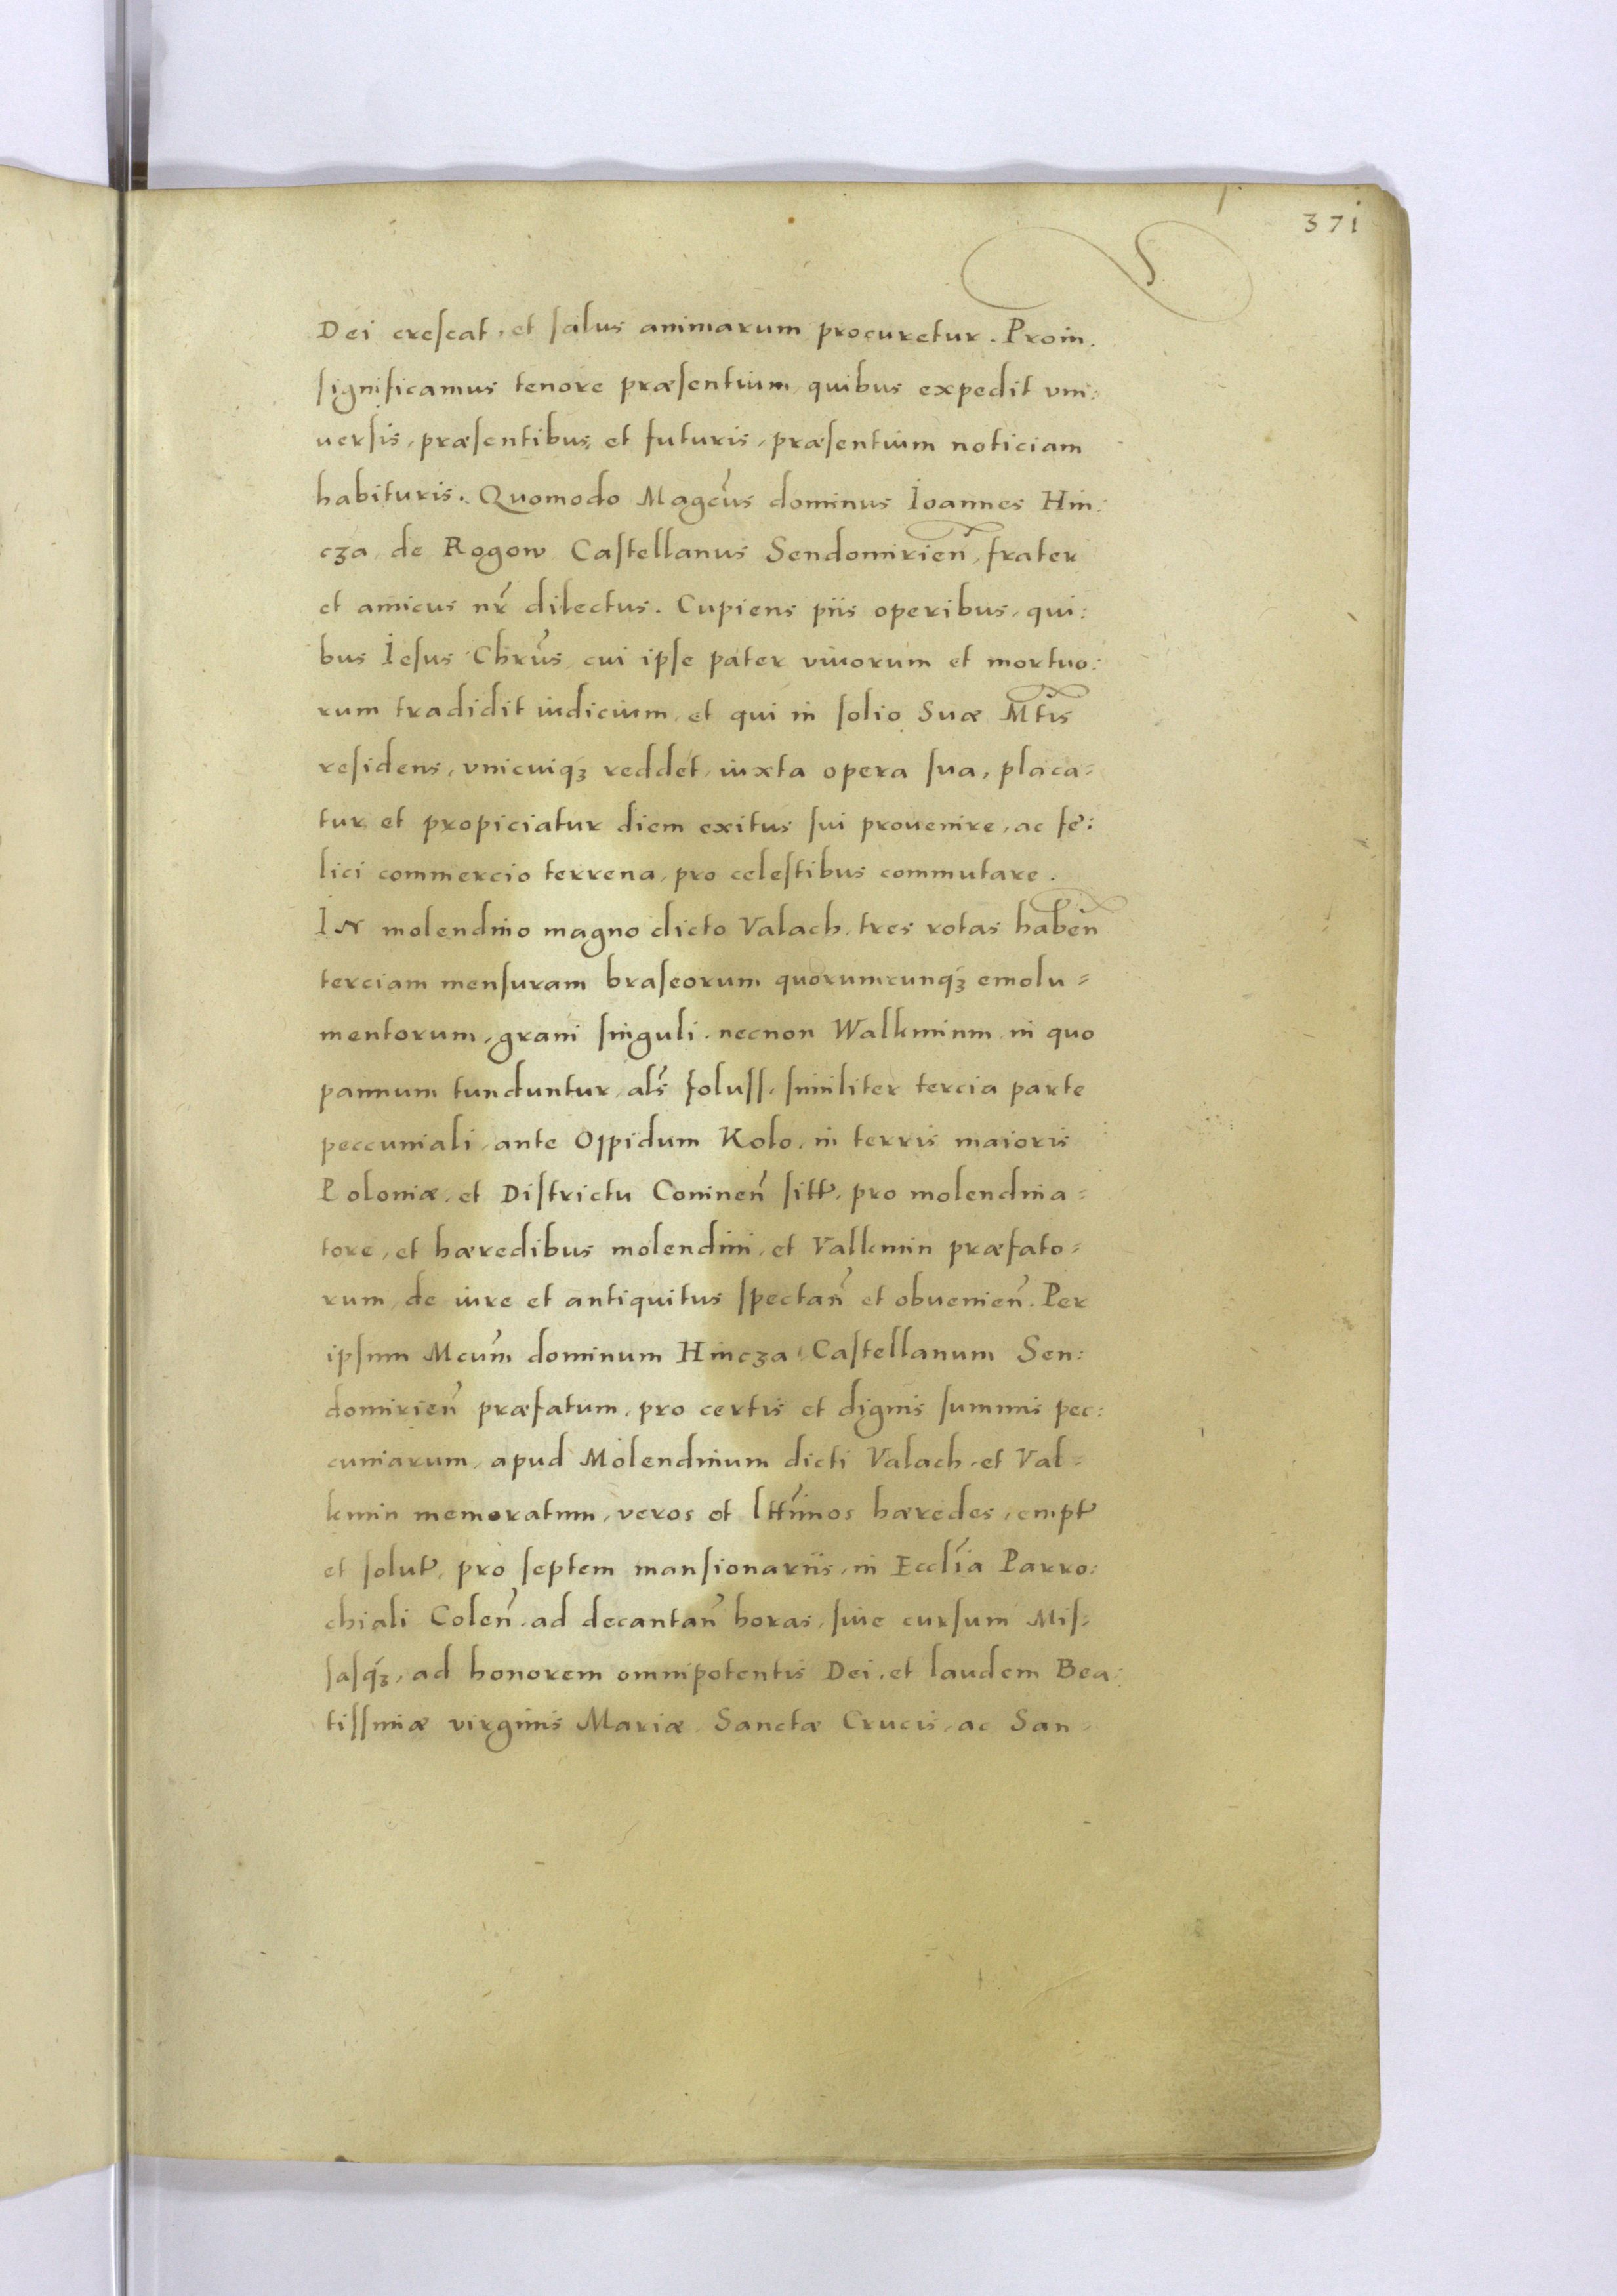 371
Dei crescat, et salus animarum procuretur. Proin.
significamus tenore præsentium, quibus expedit vni:
uersis, præsentibus, et futuris, præsentium noticiam
habituris. Quomodo Magcūs dominus Ioannes Hin:
cza, de Rogow Castellanus Sendomirień, frater
et amicus nr̄ dilectus. Cupiens piis operibus, qui:
bus Iesus Chrūs, cui ipse pater viuorum et mortuo:
rum tradidit iudicium, et qui in solio Suæ Mt̄is
residens, vnicuiqꝫ reddet, iuxta opera sua, placa=
tur et propiciatur diem exitus sui prouenire, ac fe:
lici commercio terrena, pro celestibus commutare.
IN molendino magno dicto Valach, tres rotas habeñ
terciam mensuram braseorum quorumcunqꝫ emolu=
mentorum, grani singuli, necnon Walkminm in quo
pannum tunduntur, als̄ foluss, similiter tercia parte
peccuniali, ante Oppidum Kolo, in terris maioris
Poloniæ, et Districtu Conineñ sitt̄, pro molendina=
tore, et hæredibus molendini, et Valkmin præfato=
rum, de iure et antiquitus spectañ et obuenieñ. Per
ipsum Mcūm dominum Hincza Castellanum Sen:
domirieñ præfatum, pro certis et dignis summis pec:
cuniarum, apud Molendinum dicti Valach, et Val=
kmin memoratum, veros et lttīmos hæredes, empt̄
et solut̄, pro septem mansionariis, in Ecclīa Parro:
chiali Coleñ, ad decantañ horas, siue cursum Mis=
sasqꝫ, ad honorem omnipotentis Dei, et laudem Bea:
tissimæ virginis Mariæ, Sanctæ Crucis, ac San=